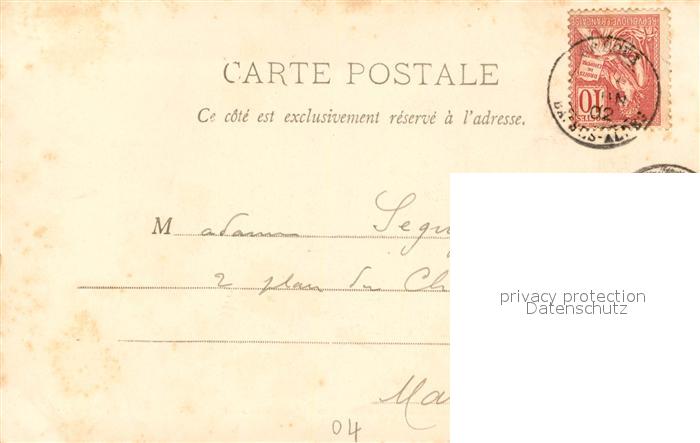 CARTE POSTALE
Ce côté est exclusivement réservé à l'adresse.
REPUBLIQUE FRANÇAISE
10
02
Madame Segu
2 place du Ch
Ma
04
privacy protection
Datenschutz